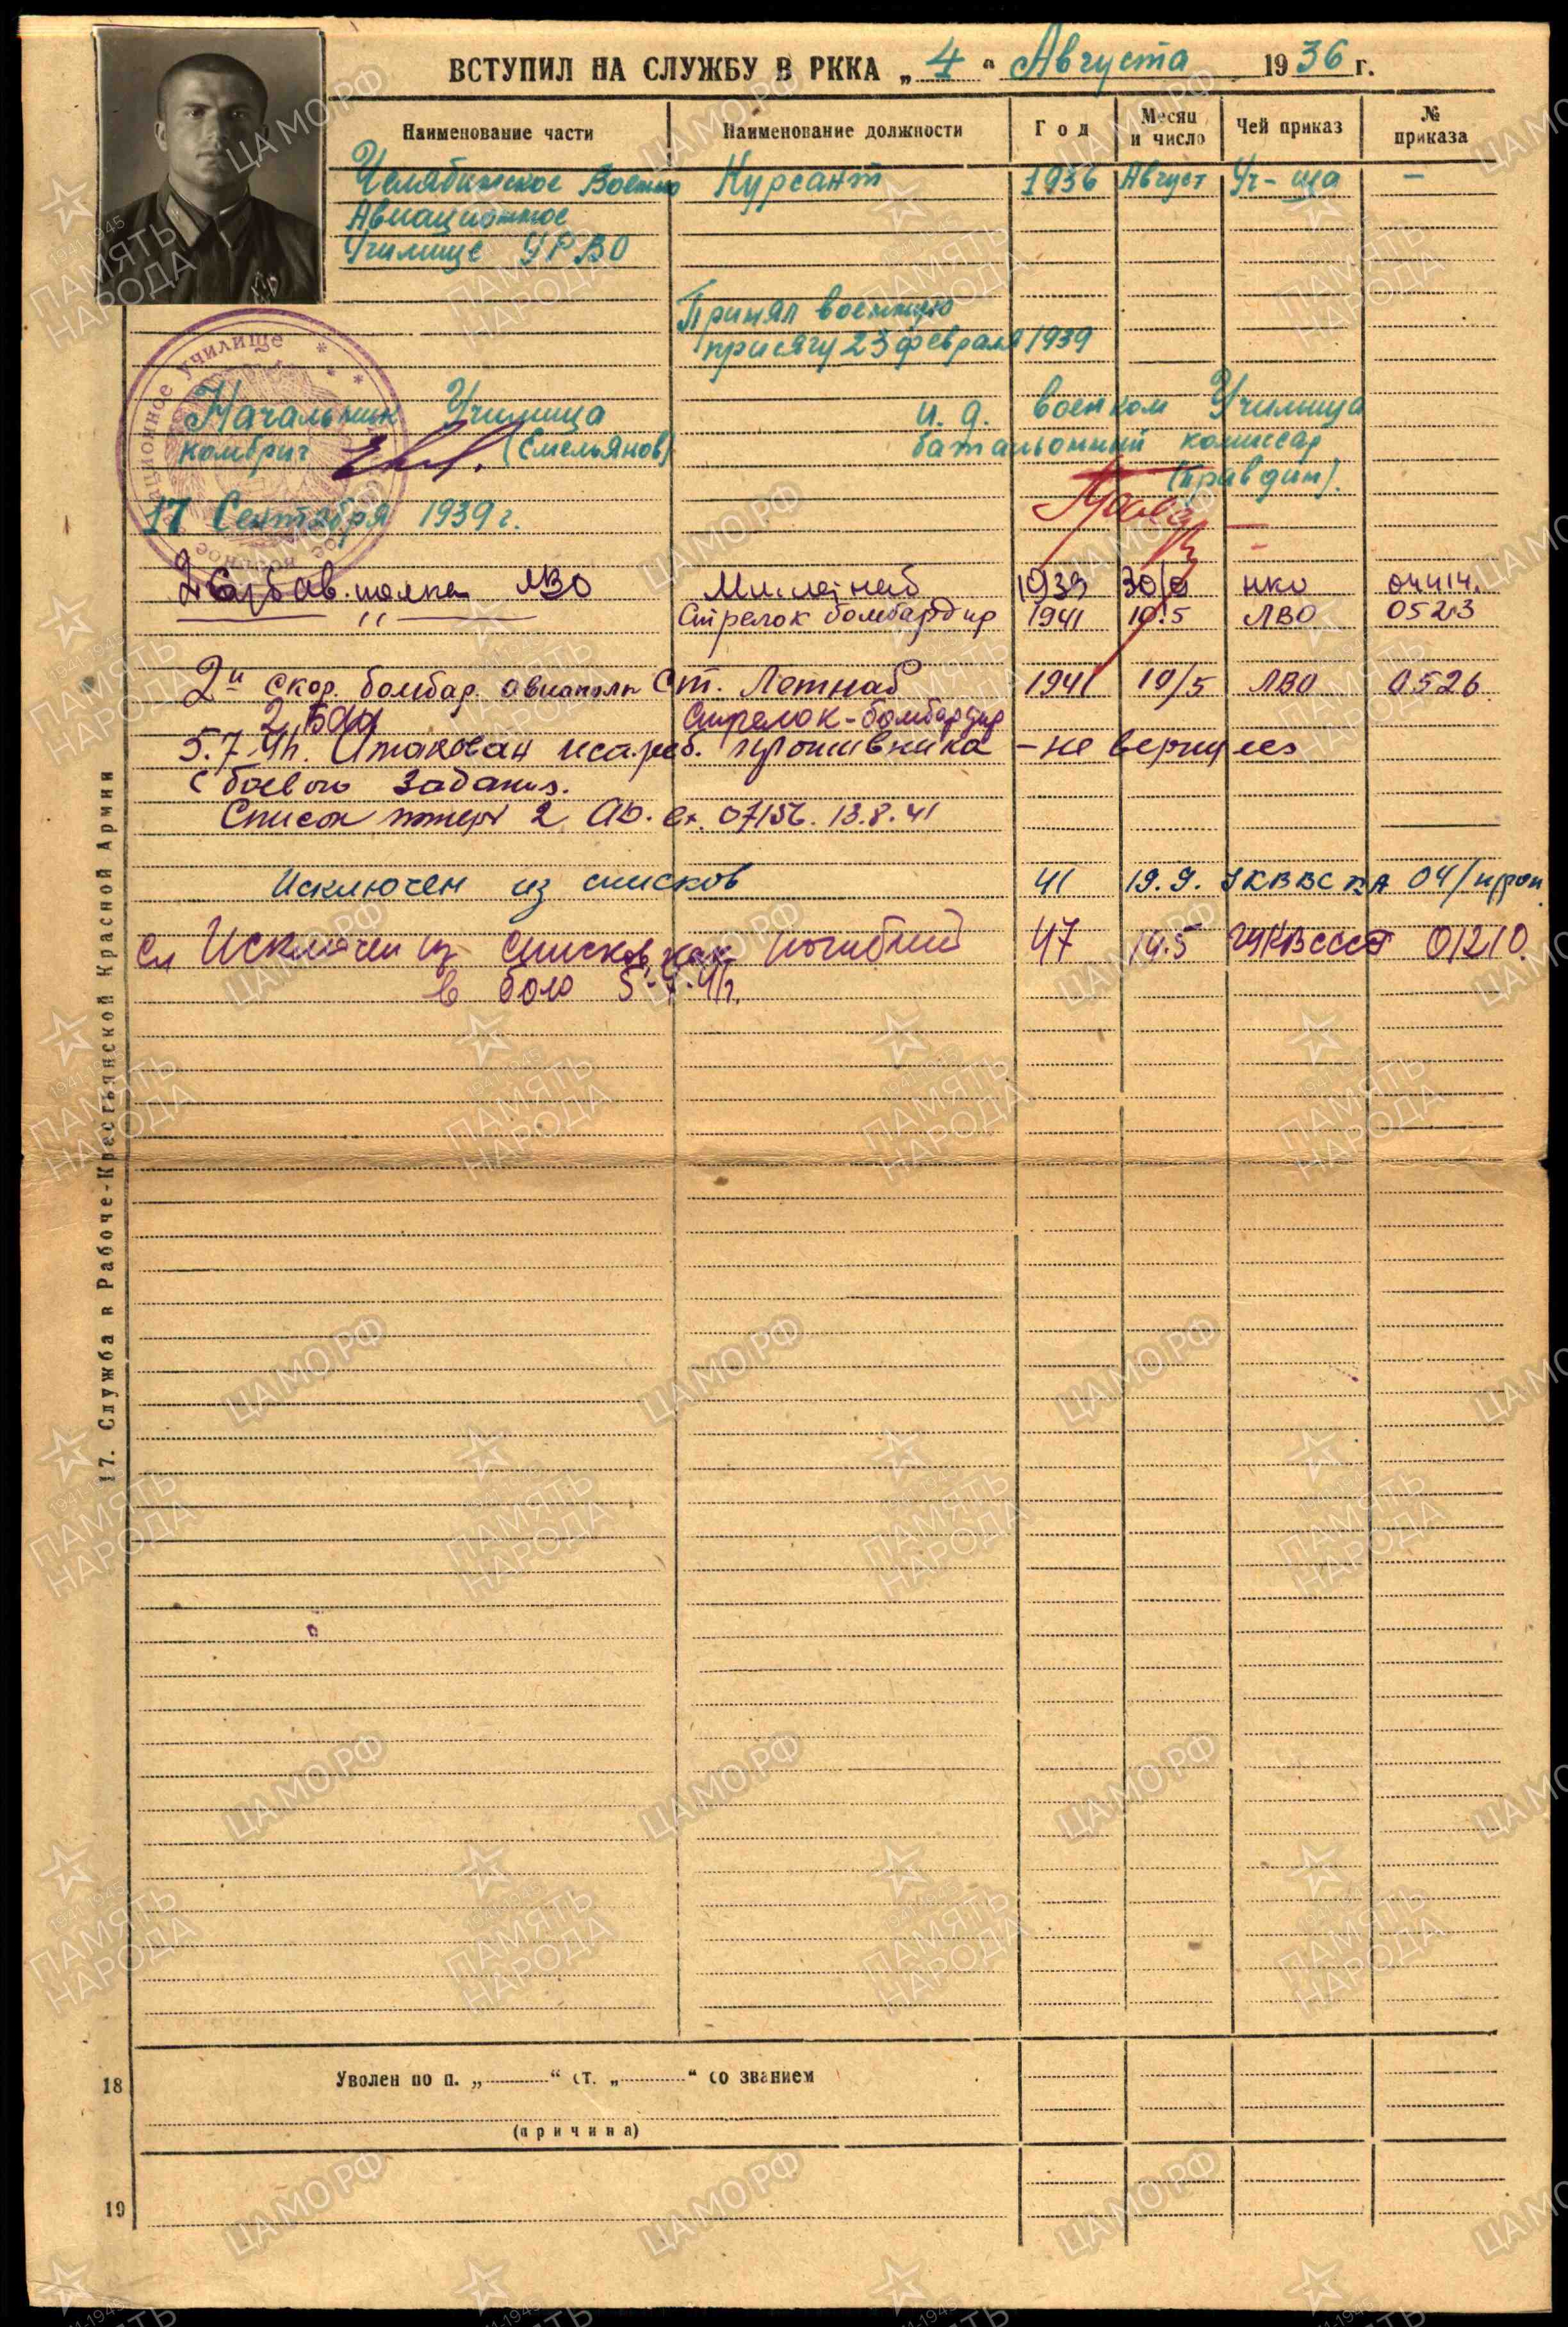 ВСТУПИЛ НА СЛУЖБУ В РККА „4“ Августа 1936 г.
Наименование части Наименование должности Год Месяц и число Чей приказ № приказа
Челябинское Военно Курсант 1936 Август Уч-ща —
Авиационное
Училище УРВО
Принял военную
присягу 23 февраля 1939
Начальник Училища и. д. военком Училища
комбриг (Емельянов) батальонный комиссар
(Правдин).
17 Сентября 1939 г.
ав. полка ЛВО 1939 НКО 04414.
—〃— Стрелок бомбардир 1941 10.5 ЛВО 0523
2й скор. бомбард. авиаполк Ст. Летнаб 1941 10/5 ЛВО 0526
2 Стрелок-бомбардир
5.7.41г. Атакован истреб. противника — не вернулся
с боевого задания.
Список потерь 2 вх. 07156. 13.8.41
Исключен из списков 41 19.9. УК ВВС КА 04/
Исключен из списков как погибший 47 14.5 01210.
в бою 5.7.41г.
17. Служба в Рабоче-Крестьянской Красной Армии
18 Уволен по п. „ “ ст. „ “ со званием
(причина)
19
ЦАМО.РФ
1941-1945
ПАМЯТЬ
НАРОДА